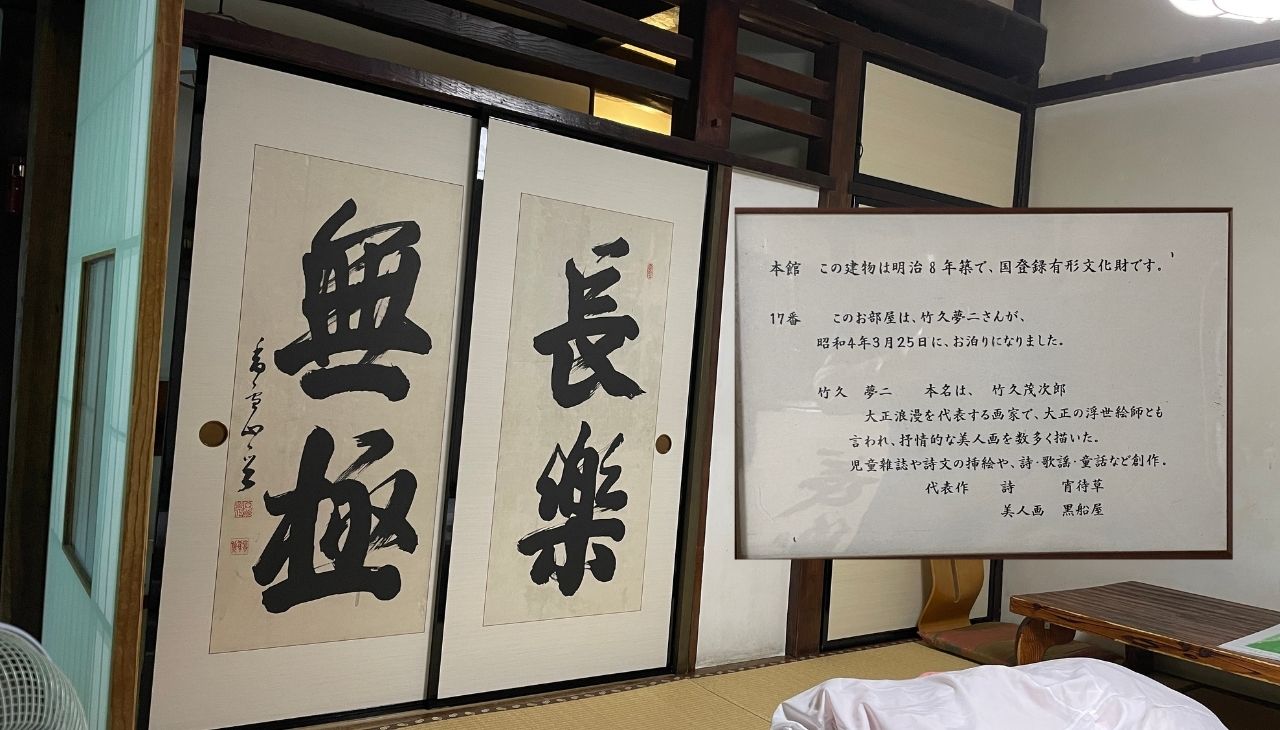 長樂
無極
本館 この建物は明治8年築で、国登録有形文化財です。
17番 このお部屋は、竹久夢二さんが、
昭和4年3月25日に、お泊りになりました。
竹久 夢二 本名は、 竹久茂次郎
大正浪漫を代表する画家で、大正の浮世絵師とも
言われ、抒情的な美人画を数多く描いた。
児童雑誌や詩文の挿絵や、詩・歌謡・童話など創作。
代表作 詩 宵待草
美人画 黒船屋